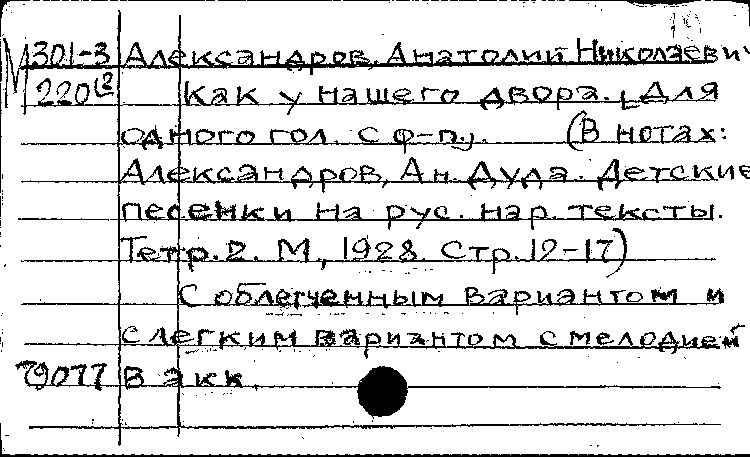 М 301-3 Александров, Анатолий Николаевич
220(2 Как у нашего двора. [Для
одного гол. с ф-п.]. (В нотах:
Александров, Ан. Дуда. Детские
песенки на рус. нар. тексты.
Тетр. 2. М, 1928. Стр. 12-17)
С облегченным вариантом и
с легким вариантом с мелодией
79077 в акк.